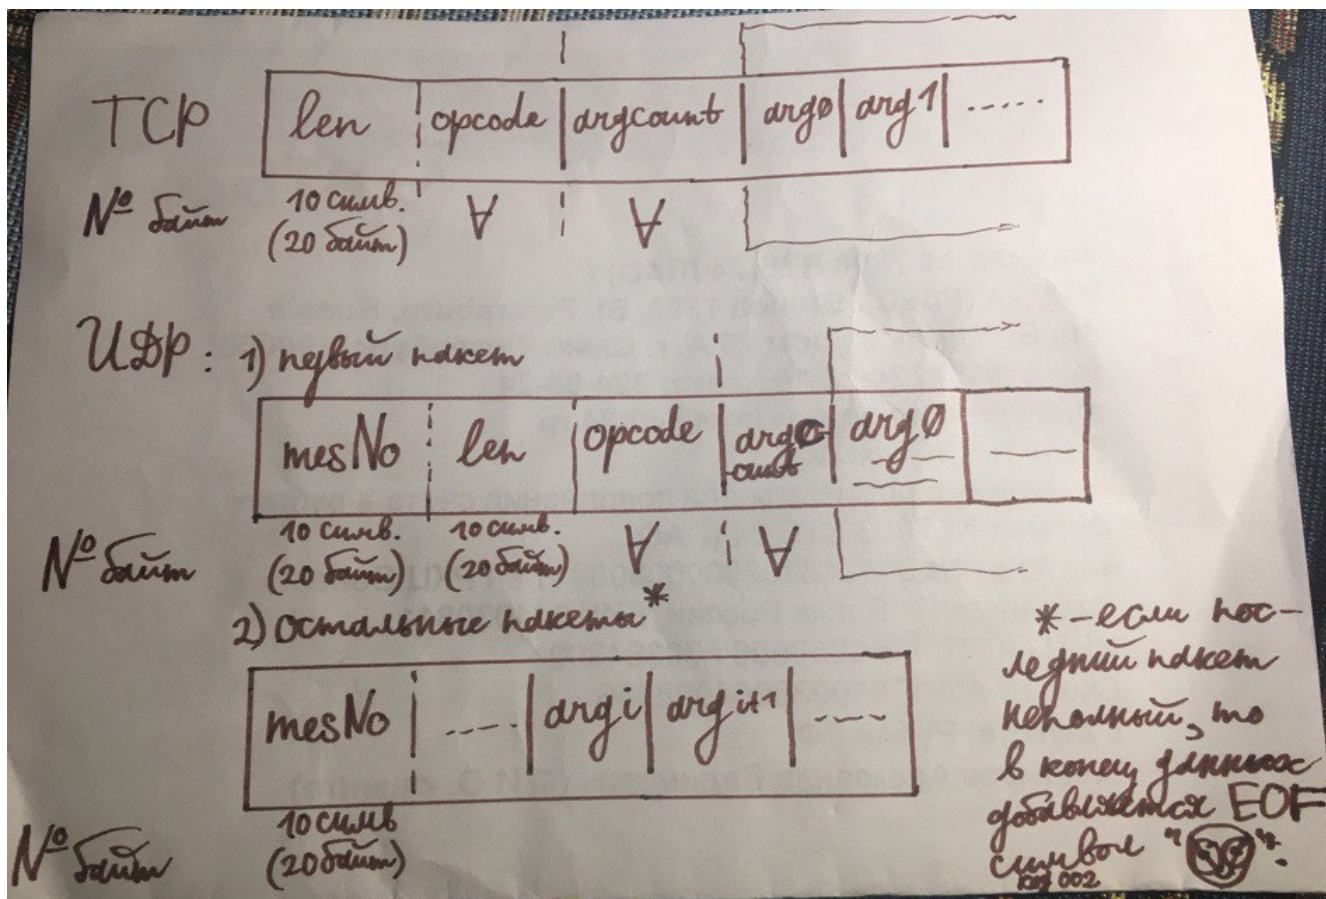 TCP len opcode argcount argØ arg1 .....
№ байт 10 симв. ∀ ∀
(20 байт)
UDP: 1) первый пакет
mesNo len opcode argc argØ
ount
№ байт 10 симв. 10 симв. ∀ ∀
(20 байт) (20 байт)
2) остальные пакеты *
mesNo .... argi argi+1 ....
№ байт 10 симв
(20 байт)
* - если пос-
ледний пакет
неполный, то
в конец данных
добавляется EOF
символ " ".
002